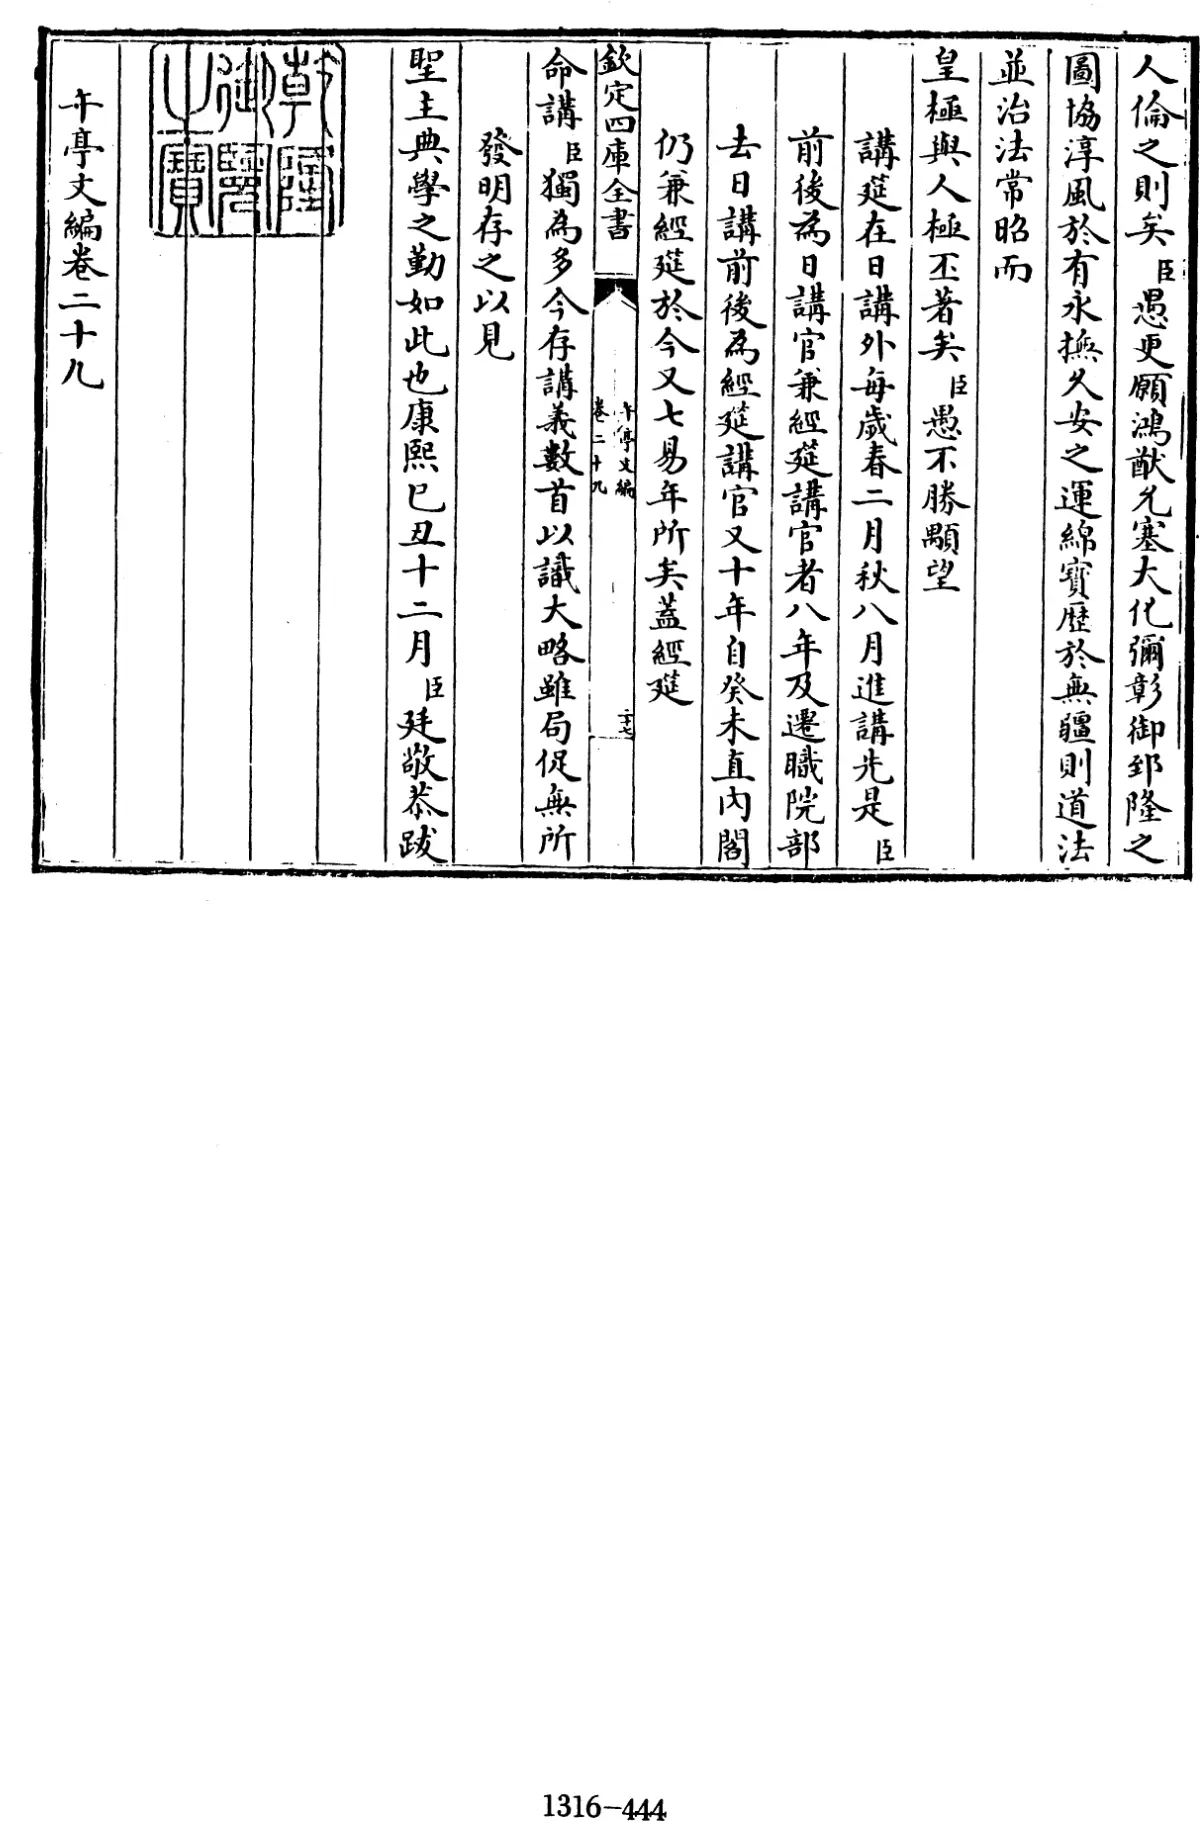 人倫之則矣臣愚更願鴻猷允塞大化彌彰御郅隆之
圖協淳風於有永撫久安之運綿寳歴於無疆則道法
並治法常昭而
皇極與人極丕著矣臣愚不勝顒望
講筵在日講外每歲春二月秋八月進講先是臣
前後為日講官兼經筵講官者八年及遷職院部
去日講前後為經筵講官又十年自癸未直内閣
仍兼經筵於今又七易年所矣蓋經筵
欽定四庫全書
午亭文編
卷二十九
二十七
命講臣獨為多今存講義數首以識大略雖局促無所
發明存之以見
聖主典學之勤如此也康熙己丑十二月臣廷敬恭跋
乾隆御覽之寶
午亭文編卷二十九
1316-444